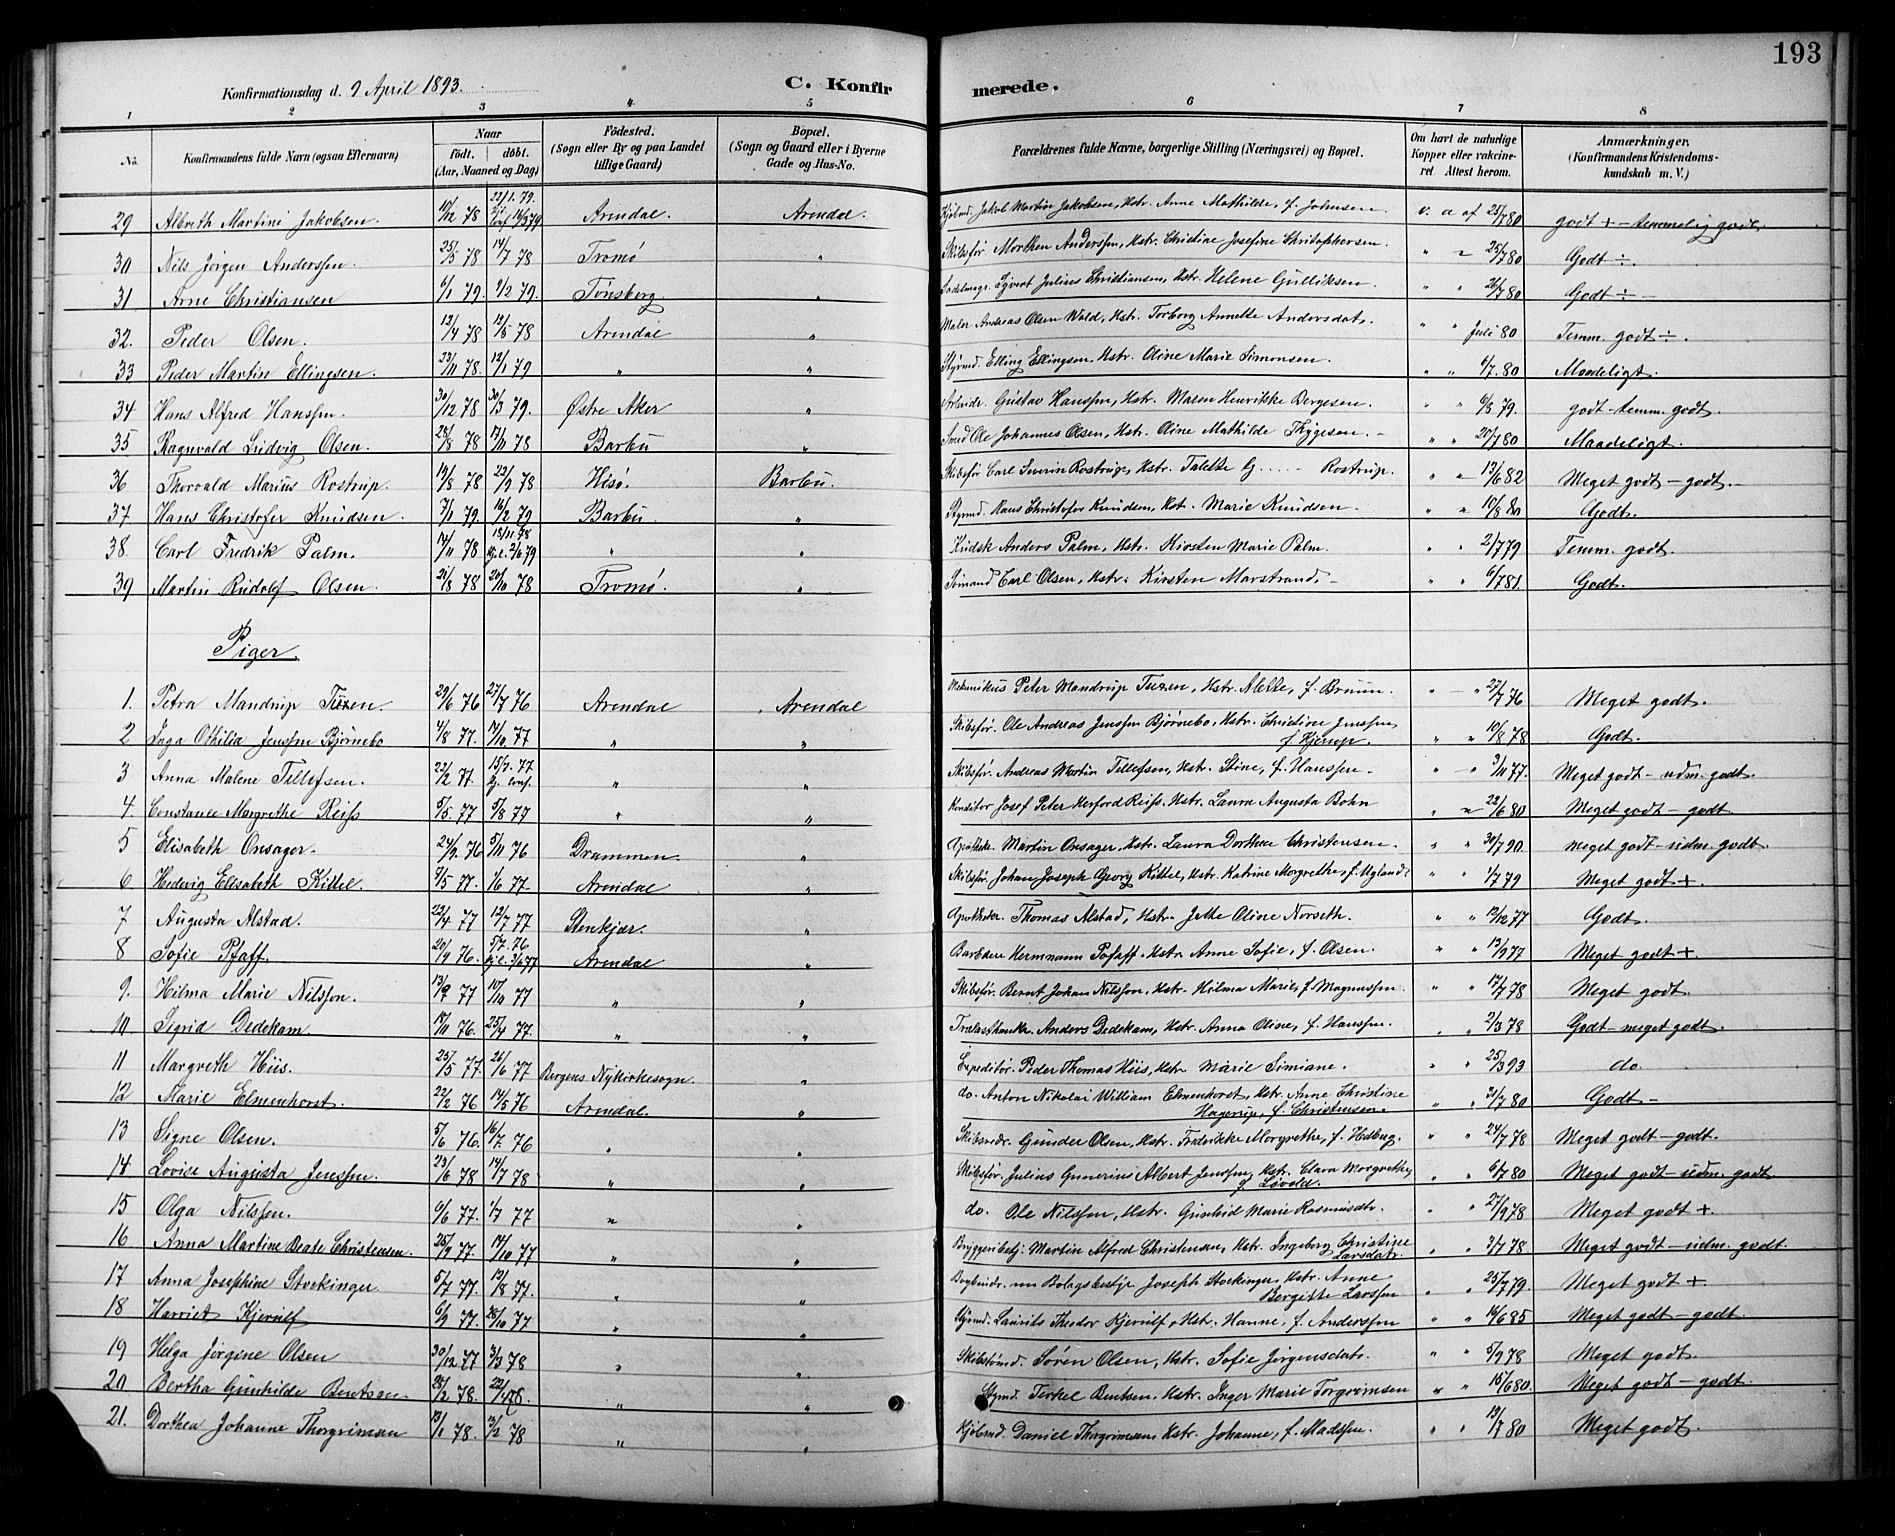 193
Konfirmationsdag d. 9 April 1893.
C. Konfirmerede.
1 2 3 4 5 6 7 8
No. Konfirmandens fulde Navn (ogsaa Efternavn) Naar født. døbt. (Aar, Maaned og Dag) Fødested. (Sogn eller By og paa Landet tillige Gaard) Bopæl. (Sogn og Gaard eller i Byerne Gade og Hus-No. Forældrenes fulde Navne, borgerlige Stilling (Næringsvei) og Bopæl. Om havt de naturlige Kopper eller vakcineret. Attest herom. Anmærkninger. (Konfirmandens Kristendomskundskab m. V.)
29 Albreth Martini Jakobsen. 10/12 78 22/1. 79. Arendal. Arendal. Kjøbmd. Jakob Martin Jakobsen, Hstr. Anne Mathilde, f. Johnsen. v. a. af 25/7 80 godt + - temmelig godt.
30 Nils Jørgen Anderssen. 25/5 78 14/7 78 Tromø " Skibsfør. Morthen Anderssen, Hstr. Christine Josefine Christophersen. " " 25/7 80 Godt ÷.
31 Arne Christiansen 6/1 79. 9/2 79. Tønsberg. " Sadelmagr. Syvert Julius Christiansen, Hstr. Helene Gulliksen. " " 26/7 80 Godt ÷ -
32. Peder Olsen. 13/4 78 12/5 78 Arendal " Maler Andreas Olsen Wold, Hstr. Torborg Annette Andersdat. " " Juli 80 Temm. godt ÷.
33 Peder Martin Ellingsen. 23/11 78. 12/1 79 " " Styrmd. Elling Ellingsen, Hstr. Oline Marie Simonsen. " " 6/7. 80 Maadeligt.
34 Hans Alfred Hanssen. 30/12 78 30/3 79. Østre Aker " Arbeidr. Gustav Hanssen, Hstr. Maren Henrikke Bergesen. " " 6/8 79. godt - temm. godt.
35 Ragnvald Ludvig Olsen. 28/8 78 17/11 78 Barbu " Smed Ole Johannes Olsen, Hstr. Oline Mathilde Thygesen. - " " 20/7 80 Maadeligt.
36 Thorvald Marius Rostrup. 19/8 78 22/9 78 Hisø. Barbu. Skibsfør Carl Severin Rostrup, Hstr. Talette G..... Rostrup. " " 13/6 82 Meget godt - godt. -
37 Hans Christofer Knudsen. 7/1 79. 16/2 79 Barbu. " Styrmd. Hans Christofer Knudsen, Hst. Marie Knudsen. " " 10/8 80 Godt.
38. Carl Fredrik Palm. 17/11 78 18/11. 78 Kj.c. 2/6 79 " " Kudsk Anders Palm, Hstr. Kirsten Marie Palm. " " 2/7 79 Temm. godt.
39 Martin Rudolf Olsen. 21/8 78 20/10 78 Tromø. " Sømand Carl Olsen, Hstr. Kirsten Marstrand. - " " 6/7 81. Godt.
Piger.
1. Petra Mandrup Tuxen. 29/6 76 27/7 76 Arendal Arendal Mekanikus Peter Mandrup Tuxen, Hstr. Alette, f. Bruun. " - " 27/7 76 Meget godt.
2 Inga Othilia Jenssen Bjørnebo 4/8 77. 14/10. 77 " " Skibsfør. Ole Andreas Jenssen Bjørnebo, Hstr. Christine Jenssen, f. Kjerup. " " 10/8 78 Godt.
3 Anna Malene Tellefsen. 22/2 77. 15/7. 77 " " Skibsfør. Andreas Martin Tellefsen, Hstr. Stine, f. Hanssen. " - " 3/11 77. Meget godt - udm. godt.
4. Constance Margrethe Reiss 5/5. 77 5/8 77 " " Konditor Josef Peter Herford Reiss. Hstr. Laura Augusta Bohn " " 22/6 80 Meget godt - godt.
5 Elisabeth Onsager. 24/9. 76 5/11 76 Drammen " Apothek. Martin Onsager, Hstr. Laura Dorthea Christensen. " " 30/7 90. Meget godt - udm. godt.
6 Hedvig Elisabeth Kittel. 3/5 77. 1/6 77 Arendal " Skibsfør. Johan Joseph Georg Kittel, Hstr. Katrine Margrethe, f. Ugland " " 1/7 79 Meget godt +.
7 Augusta Alstad. 22/4 77 12/7 77 Stenkjær. " Apotheker. Thomas Alstad, Hstr. Jette Oline Norseth. " " 12/12 77 Godt.
8 Sofie Pfaff. 20/9 76. 5/7. 76 Kj.c. 3/6 77 Arendal " Barbere Hermnann Pofaff, Hstr. Anne Sofie, f. Olsen. " " 13/9 77 Meget godt +.
9. Hilma Marie Nilsson. 13/9 77 10/10 77 " " Skibsfør. Bernt Johan Nilsson, Hstr. Hilma Marie, f. Magnussen. " " 17/7 78 Meget godt.
10 Sigrid Dedekam. 17/11 76. 25/4 77. " " Trælasthandler. Anders Dedekam, Hstr. Anna Oline, f. Hanssen. " " 2/3 78 Godt - meget godt.
11 Margreth Hiis. 25/5 77. 26/6 77 Bergens Nykirkesogn. " Expeditør. Peder Thomas Hiis, Hstr. Marie Simiane. " " 25/3 93 do.
12 Marie Elmenhorst. 22/2 76 14/5 76 Arendal. " do. Anton Nikolai William Elmenhorst, Hstr. Anne Christine Hagerup, f. Christensen. " " 31/7 80 Godt -
13 Signe Olsen. 5/6 76. 16/7. 76 " " Skibsredr. Gunder Olsen, Hstr. Fredrikke Margrethe, f. Hoberg. " " 24/7 78 Meget godt - godt.
14 Lovise Augusta Jenssen. 23/6 78 14/7 78 " " Skibsfør. Julius Gunerius Albert Jenssen, Hstr. Clara Margrethe, f. Løvold. " " 6/7 80 Meget godt - udm. godt
15 Olga Nilssen. 9/6 77. 1/7 77 " " do. Ole Nilssen, Hstr. Gunhild Marie Rasmusdtr. " " 27/9 78 Meget godt +
16 Anna Martine Beate Christensen. 25/9 77. 14/10 77 " " Bryggeribestj. Martin Alfred Christensen, Hstr. Ingeborg Christine Larsdatr. " " 3/7 78 Meget godt - udm. godt.
17 Anna Josephine Stockinger 5/7 77. 12/8 77. " " Bogbindr. nu Bolagsbestyr Joseph Stockinger, Hstr. Anne Bergitte Larssen " " 25/7 79. Meget godt +
18 Harriet Kjerulf 6/9 77. 28/10 77 " " Styrmd. Laurits Theodor Kjerulf, Hstr. Hanne, f. Anderssen " " 14/6 85 Meget godt - godt.
19 Helga Jørgine Olsen 30/12 77 3/3 78 " " Skibstømd. Søren Olsen, Hstr. Sofie Jørgensdatr. " " 5/9 78 Meget godt.
20 Bertha Gunhilde Bentsen 23/2 78. 22/4 78. " " Stymd. Terkel Bentsen, Hstr. Inger Marie Torgrimsen " " 15/6 80. Meget godt - godt.
21. Dorthea Johanne Thorgrimsen 13/1 78. 13/2 78 " " Kjøbmd. Daniel Thorgrimsen, Hstr. Johanne, f. Madssen. " " 13/7 80 Meget godt.